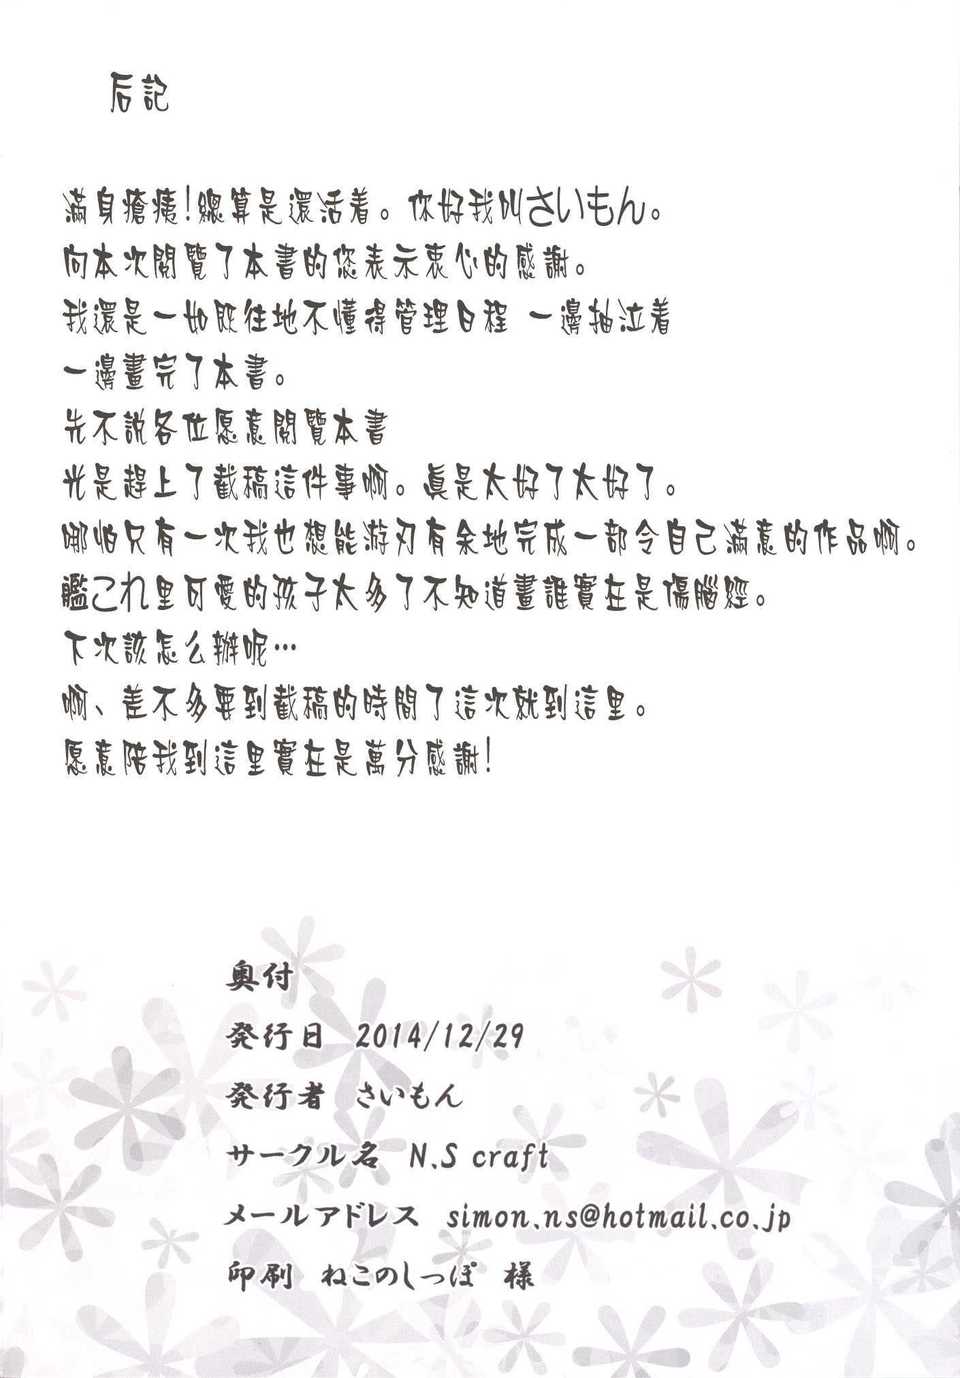 后記
滿身瘡痍！總算是還活着。你好我叫さいもん。
向本次閱覽了本書的您表示衷心的感謝。
我還是一如既往地不懂得管理日程 一邊抽泣着
一邊畫完了本書。
先不說各位愿意閱覽本書
光是趕上了截稿這件事啊。眞是太好了太好了。
哪怕只有一次我也想能游刃有余地完成一部令自己滿意的作品啊。
艦これ里可愛的孩子太多了不知道畫誰實在是傷腦經。
下次該怎么辦呢…
啊、差不多要到截稿的時間了這次就到這里。
愿意陪我到這里實在是萬分感謝！
奥付
発行日 2014/12/29
発行者 さいもん
サークル名 N.S craft
メールアドレス simon.ns@hotmail.co.jp
印刷 ねこのしっぽ 様